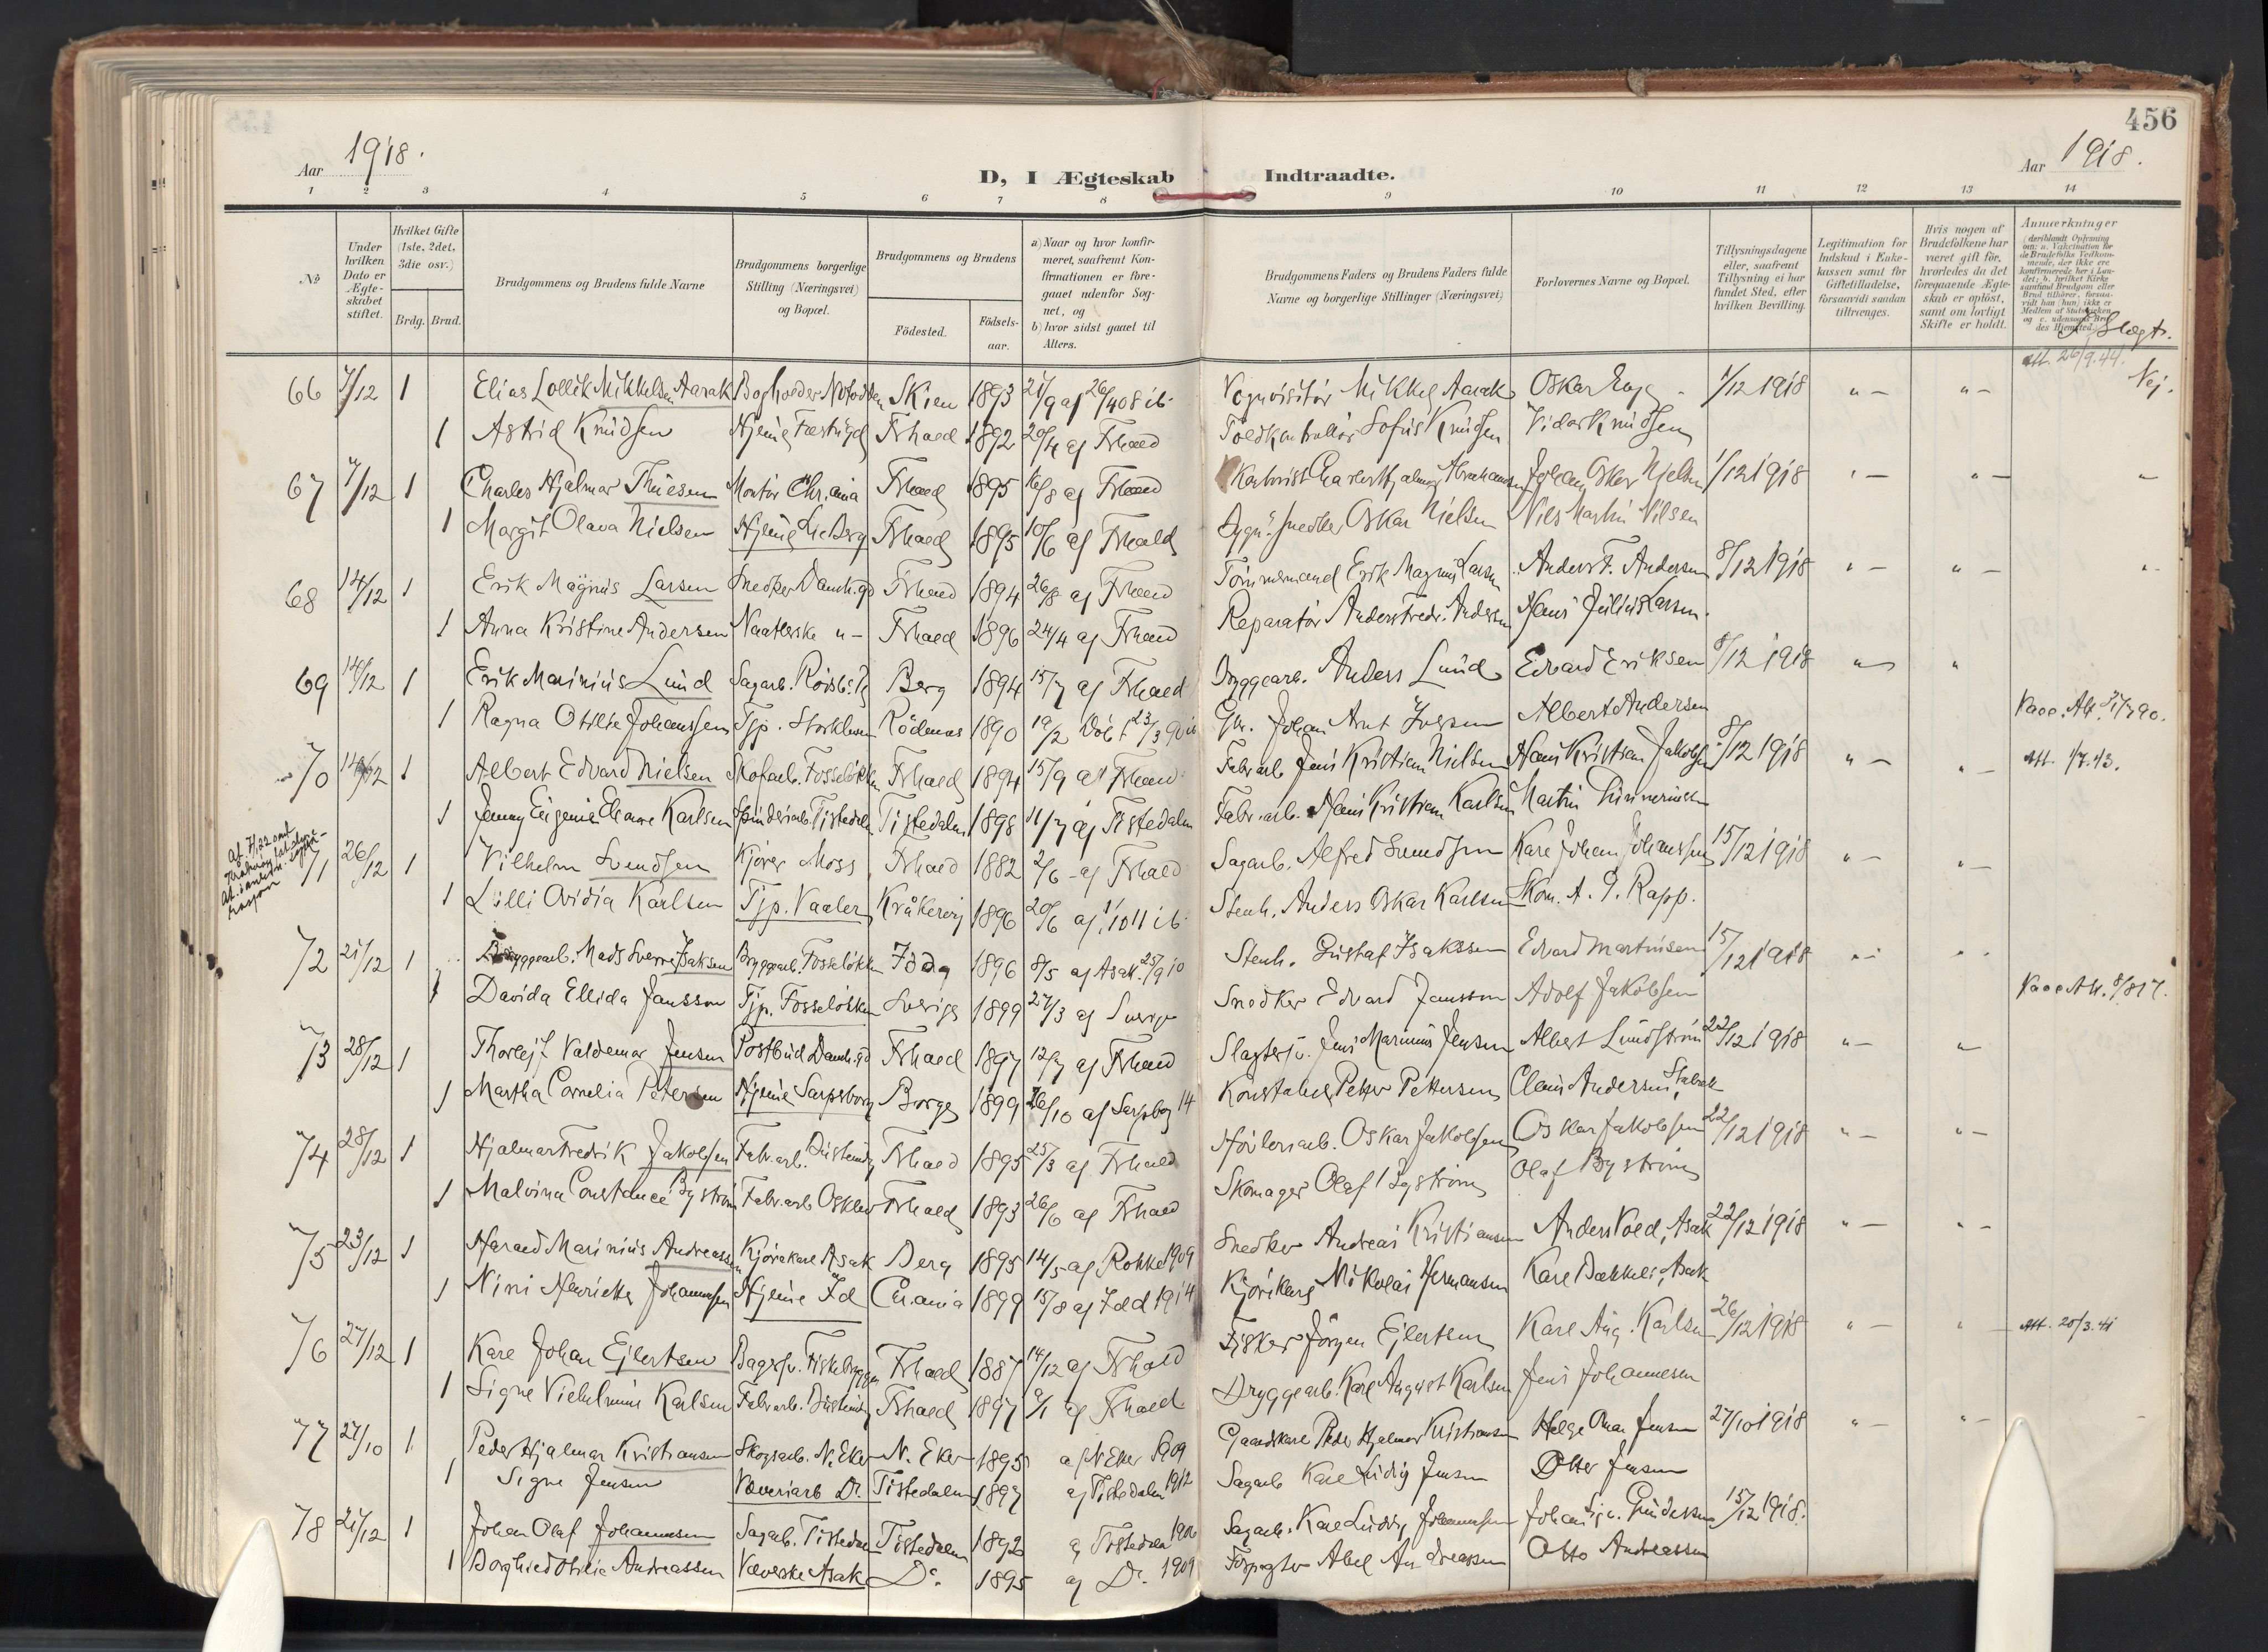 456
Aar 1918.
D, I Ægteskab Indtraadte.
Aar 1918.
1 2 3 4 5 6 7 8 9 10 11 12 13 14
№
Under hvilken Dato er Ægteskabet stiftet.
Hvilket Gifte (1ste, 2det, 3die osv.)
Brdg. Brud.
Brudgommens og Brudens fulde Navne
Brudgommens borgerlige Stilling (Næringsvei) og Bopæl.
Brudgommens og Brudens
Födested.
Födsels-aar.
a) Naar og hvor konfirmeret, saafremt Konfirmationen er foregaaet udenfor Sognet, og
b) hvor sidst gaaet til Alters.
Brudgommens Faders og Brudens Faders fulde Navne og borgerlige Stillinger (Næringsvei)
Forlovernes Navne og Bopæl.
Tillysningsdagene eller, saafremt Tillysning ei har fundet Sted, efter hvilken Bevilling.
Legitimation for Indskud i Enkekassen samt for Giftetilladelse, forsaavidt saadan tiltrænges.
Hvis nogen af Brudefolkene har været gift för, hvorledes da det foregaaende Ægteskab er oplöst, samt om lovligt Skifte er holdt.
Anmærkninger
Slægt.
att. 26/9.44.
66 7/12 1 Elias Lollik Mikkelsen Aarak Bogholder Notodden Skien 1893 21/9 af 26/4 08 ib. Vognvisitör Mikkel Aarak Oskar Eng 1/12 1918 " — " — Nej.
1 Astrid Knudsen Hjemme Fhald 1892 20/4 af Fhald Toldkontrollör Sofus Knudsen Vidar Knudsen
67 7/12 1 Charles Hjalmar Thuesen Montör Chr.ania Fhald 1895 16/8 af Fhald Charles Hjalmar Abrahamsen Johan Oskar Nielsen 1/12 1918 " — " — "
1 Margit Olava Nielsen Hjemme Fhald 1895 10/6 af Fhald Snedker Oskar Nielsen Nils Martin Nilsen
68 14/12 1 Erik Magnus Larsen Snedker Damh.gd Fhald 1894 26/8 af Fhald Tömmermand Erik Magnus Larsen Anders F. Andersen 8/12 1918 " — " — "
1 Anna Kristine Andersen Naatleske " — Fhald 1896 24/4 af Fhald Reparatör Anders Fredr. Andersen Hans Julius Larsen.
69 14/12 1 Erik Marinius Lund Sagarb. Berg 1894 15/7 af Fhald Bryggearb. Anders Lund Edvard Eriksen 8/12 1918 " "
1 Ragna Otilie Johanssen Tjp. Rödenes 1890 19/2 Döbt 23/3 90 ib Johan Arnt Iversen Albert Andersen Vacc. Att.
70 14/12 1 Albert Edvard Nielsen Skofarb. Fosselökken Fhald 1894 15/9 af Fhald Fabr.arb. Jens Kristian Nielsen Hans Kristian Jakobsen 8/12 1918 " — " — Att. 1/7.43.
1 Jenny Eugenie Eleanore Karlsen Spinderiarb. Tistedalen Tistedalen 1898 11/7 af Tistedalen Fabr.arb. Hans Kristian Karlsen Martin
71 26/12 1 Vilhelm Svendsen Kjörer Moss Fhald 1882 2/6 af Fhald Sagarb. Alfred Svendsen Karl Johan Johanssen 15/12 1918 " — " —
1 Lilli Ovidia Karlsen Tjp. Vaaler Kråkeröy 1896 20/6 af 1/10 11 ib. Stenh. Anders Oskar Karlsen Skom. A. P. Rapp.
72 21/12 1 Mads Sverre Isaksen Bryggearb. Fosselökken Idda 1896 8/5 af Asak 25/9 10 Stenh. Gustaf Isakssen Edvard Martinsen 15/12 1918 " - " -
1 Davida Ellida Jansson Tjp. Fosselökken Sverige 1899 27/3 af Sverige Snedker Edvard Jansson Adolf Jakobsen Vacc Att. 8/8 17.
73 28/12 1 Thorleif Valdemar Jensen Postbud Damh.gd Fhald 1897 12/7 af Fhald Slagtersv. Jens Marinius Jensen Albert Lundström 22/12 1918 " — "
1 Martha Cornelia Petersen Hjemme Sarpsborg Borge 1899 26/10 af Sarpsborg 14 Konstabel Petter Pettersen Claus Andersen,
74 28/12 1 Hjalmar Fredrik Jakobsen Fabr.arb. Fhald 1895 25/3 af Fhald Hövleriarb. Oskar Jakobsen Oskar Jakobsen 22/12 1918 " — " —
1 Malvina Constance Byström Fabr.arb. Fhald 1893 26/6 af Fhald Skomager Olaf Byström Olaf Byström
75 23/12 1 Harald Marinius Andreassen Kjörekarl Asak Berg 1895 14/5 af Rokke 1909 Snedker Andreas Kristiansen Anders Vold, Asak 22/12 1918 " — " —
1 Nini Henriette Johannessen Hjemme Id Chr.ania 1899 15/8 af Idd 1914 Kjörekarl Nikolai Hermansen Karl Bakkeli, Asak
76 27/12 1 Karl Johan Ejlertsen Bagersv. Fiskebryggen Fhald 1887 14/12 af Fhald Fisker Jörgen Ejlertsen Karl Aug. Karlsen 26/12 1918 " — " — Att. 20/3.41
1 Signe Vilhelmine Karlsen Fabr.arb. Fhald 1897 9/1 af Fhald Bryggearb. Karl August Karlsen Jens Johannesen
77 27/10 1 Peder Hjalmar Kristiansen Skogsarb. N. Eker N. Eker 1895 af N Eker 1909 Gaardskarl Peder Hjalmar Kristiansen Helge Omar Jensen 27/10 1918 " — " —
1 Signe Jensen Væveriarb Do. Tistedalen 1897 af Tistedalen 1912 Sagarb Karl Ludvig Jensen Otto Jensen
78 21/12 1 Johan Olaf Johannesen Sagarb. Tistedalen Tistedalen 1892 af Tistedalen 1906 Sagarb. Karl Ludvig Johannesen Johan Sig. Gundersen 15/12 1918.
1 Borghild Otilie Andreassen Væverske Asak Do. 1895 af Do. 1909 Abel Andreassen Otto Andreassen